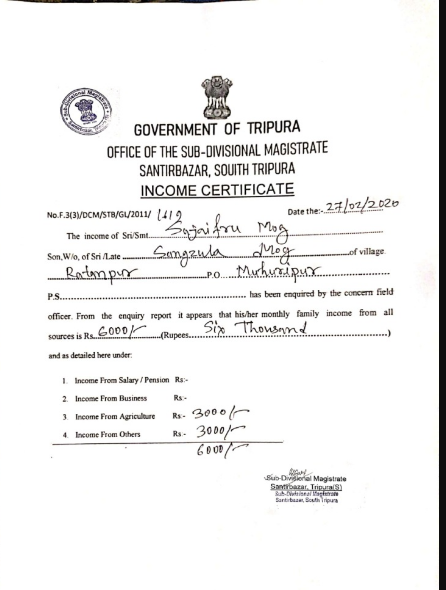 Sub-Divisional Magistrate
GOVERNMENT OF TRIPURA
OFFICE OF THE SUB-DIVISIONAL MAGISTRATE
SANTIRBAZAR, SOUTH TRIPURA
INCOME CERTIFICATE
No.F.3(3)/DCM/STB/GL/2011/ 1619 Date the:- 27/02/2020
The income of Sri/Smt. Sajaifru Mog
Son,W/o, of Sri /Late Songzula Mog of village
Ratanpur P.O Muhuripur
P.S. has been enquired by the concern field
officer. From the enquiry report it appears that his/her monthly family income from all
sources is Rs. 6000/- (Rupees Six Thousand )
and as detailed here under:
1. Income From Salary / Pension Rs:-
2. Income From Business Rs:-
3. Income From Agriculture Rs:- 3000/-
4. Income From Others Rs:- 3000/-
6000/-
Sub-Divisional Magistrate
Santirbazar, Tripura(S)
Sub-Divisional Magistrate
Santirbazar, South Tripura